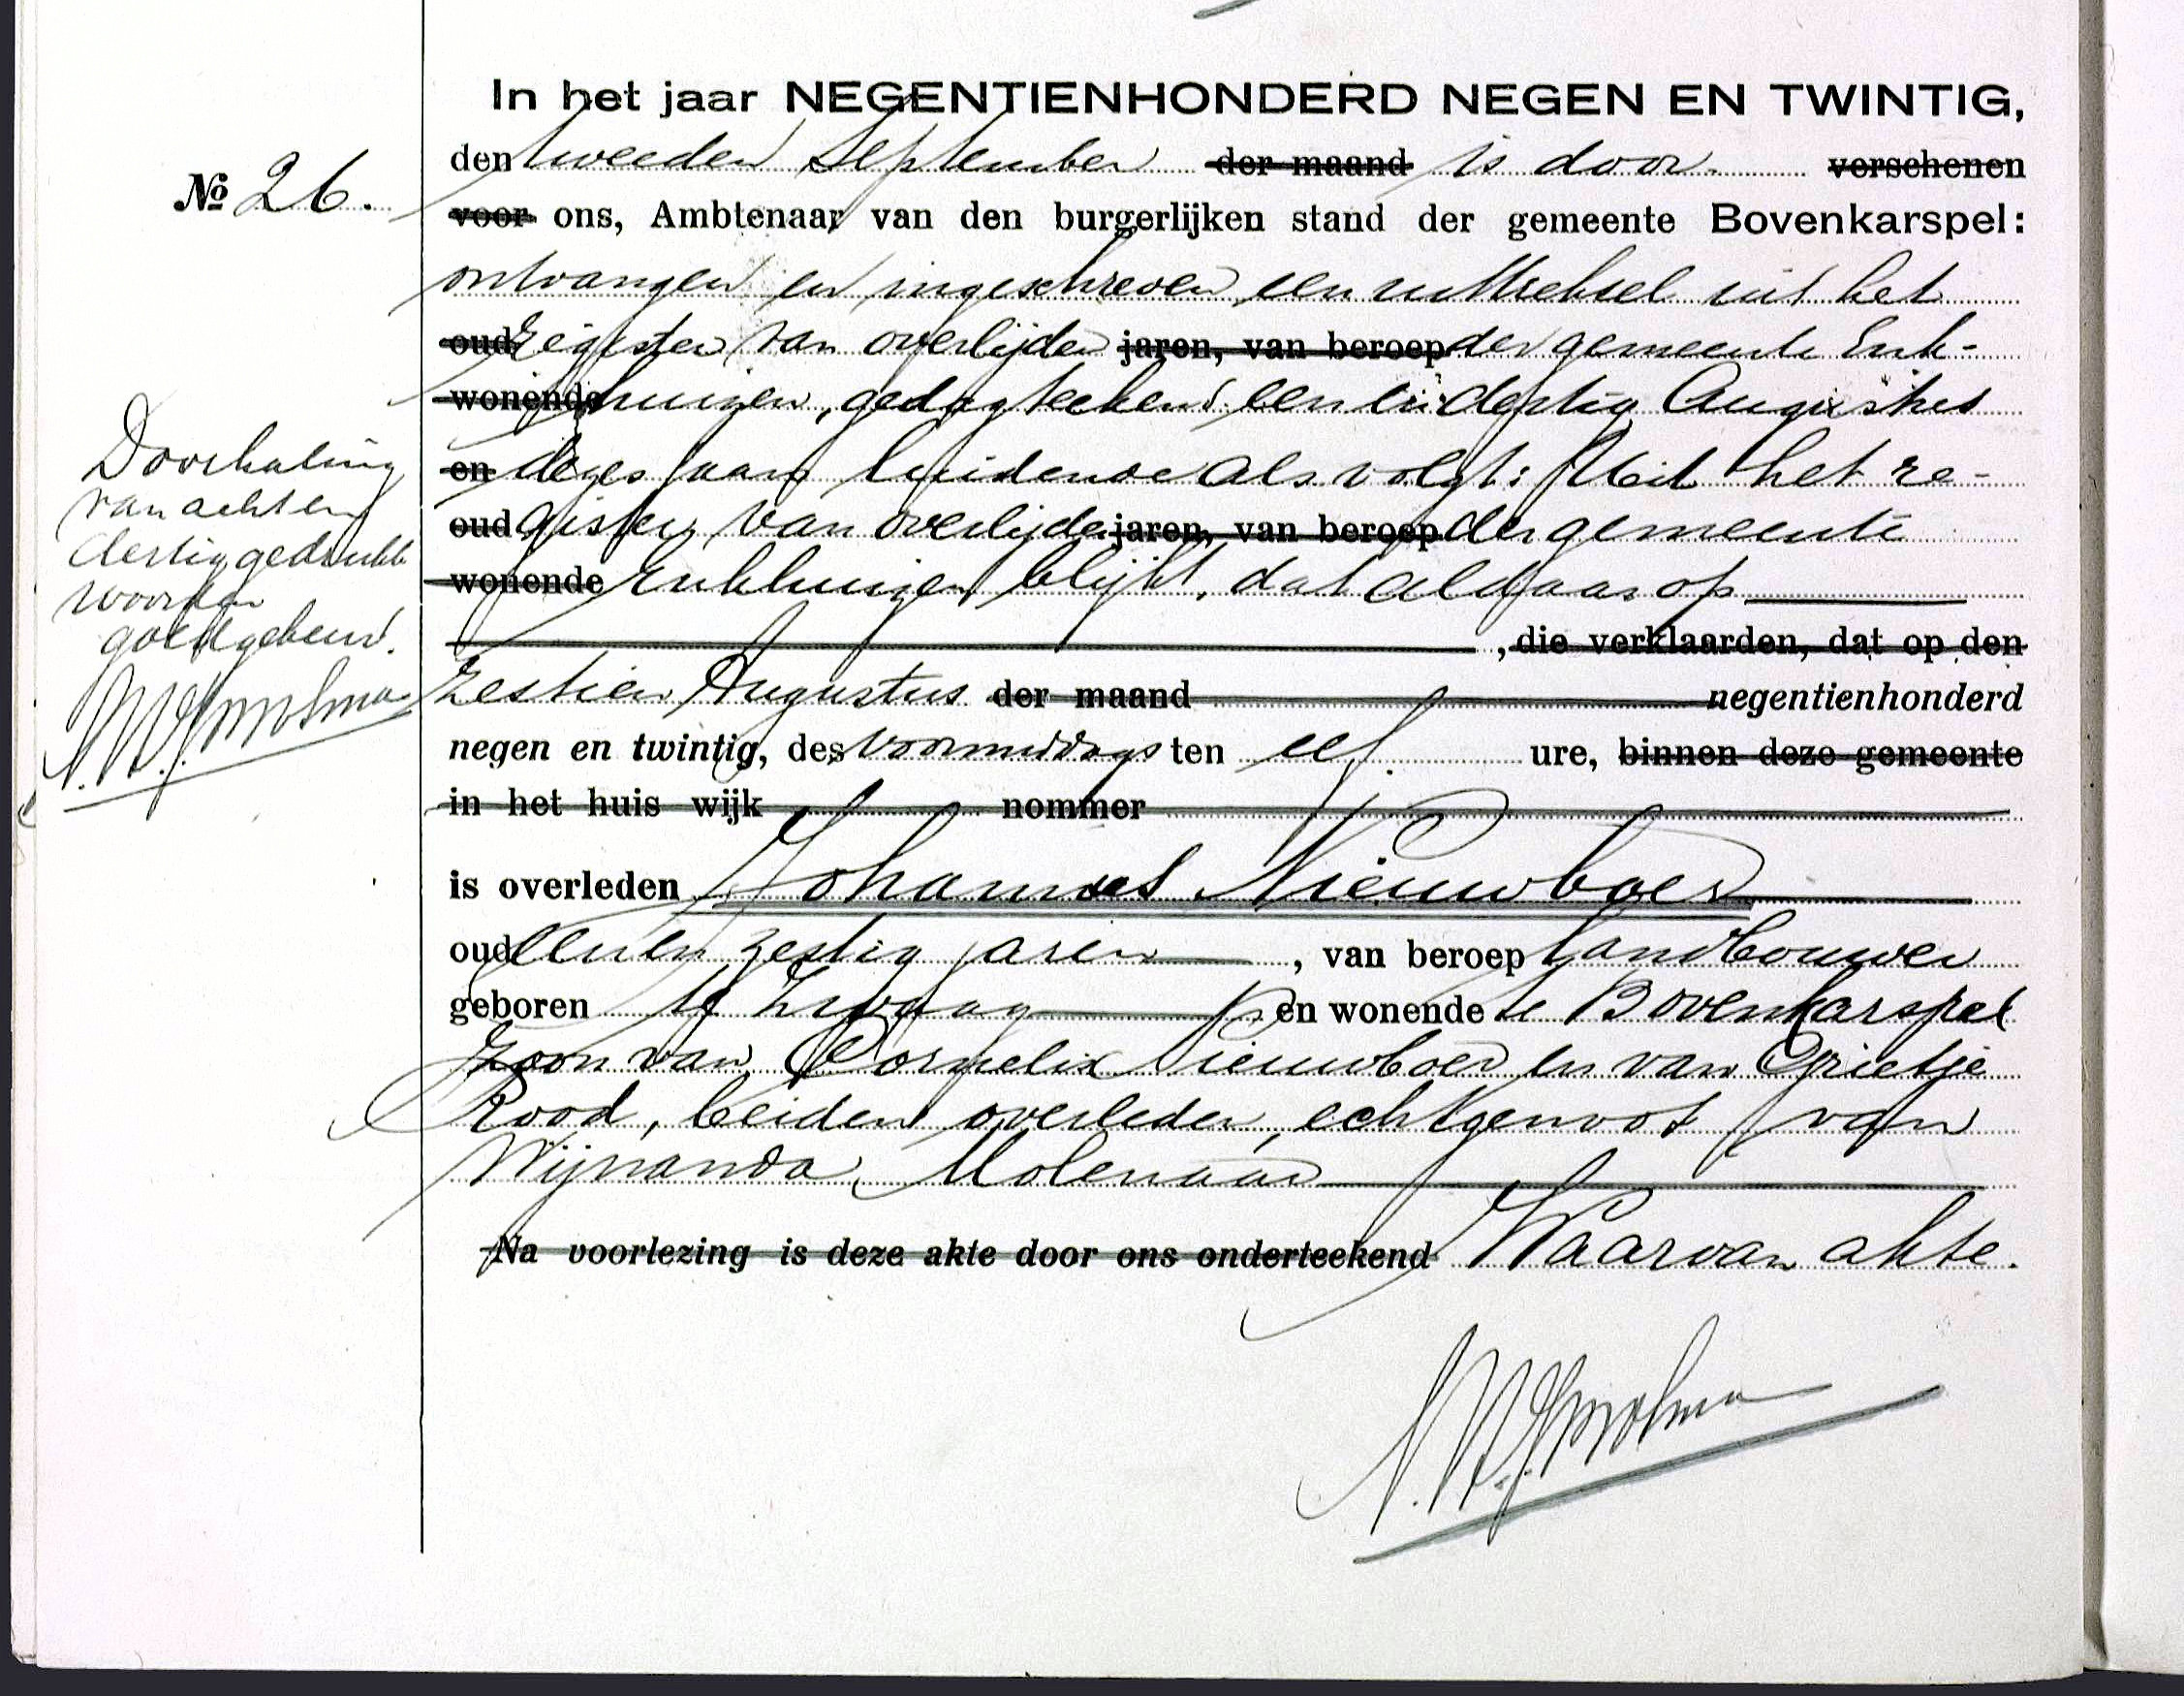 In het jaar NEGENTIENHONDERD NEGEN EN TWINTIG,
den tweeden September der maand is door verschenen
No 26.
voor ons, Ambtenaar van den burgerlijken stand der gemeente Bovenkarspel:
ontvangen en ingeschreven een uittreksel uit het
oud register van overlijden jaren, van beroep der gemeente Enk-
wonende huizen, gedagteekend een en dertig Augustus
en dezes jaars luidende als volgt: Uit het re-
oud gister van overlijden jaren, van beroep der gemeente
wonende Enkhuizen blijkt, dat aldaar op
, die verklaarden, dat op den
zestien Augustus der maand negentienhonderd
negen en twintig, des voormiddags ten elf ure, binnen deze gemeente
in het huis wijk nommer
is overleden Johannes Nieuwboer
oud een en zestig jaren, van beroep landbouwer
geboren te Zwaag en wonende te Bovenkarspel
zoon van Cornelis Nieuwboer en van Grietje
Rood, beiden overleden, echtgenoot van
Wijnanda Molenaar
Na voorlezing is deze akte door ons onderteekend Waarvan akte.
Doorhaling
van acht en
dertig gedrukte
woorden
goedgekeurd.